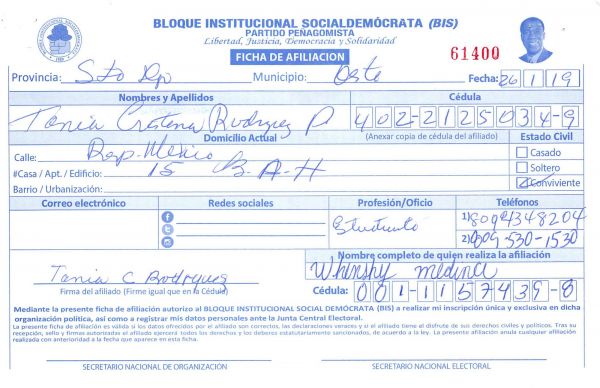 BLOQUE INSTITUCIONAL SOCIALDEMÓCRATA (BIS)
PARTIDO PEÑAGOMISTA
Libertad, Justicia, Democracia y Solidaridad
FICHA DE AFILIACION
61400
Provincia: Sto Dgo Municipio: Oeste Fecha: 26/1/19
Nombres y Apellidos Cédula
Tania Cristina Rodriguez P 402-2125034-9
Domicilio Actual (Anexar copia de cédula del afiliado) Estado Civil
Calle: Resp. Mexico Casado
#Casa / Apt. / Edificio: 15 B. A-H Soltero
Barrio / Urbanización: Conviviente
Correo electrónico Redes sociales Profesión/Oficio Teléfonos
Estudiante 1) 8094348204
2) 809-530-1530
Nombre completo de quien realiza la afiliación
Tania C Rodriguez Whinshy medina
Firma del afiliado (Firme igual que en la Cédula) Cédula: 001-1157439-8
Mediante la presente ficha de afiliación autorizo al BLOQUE INSTITUCIONAL SOCIAL DEMÓCRATA (BIS) a realizar mi inscripción única y exclusiva en dicha
organización política, así como a registrar mis datos personales ante la Junta Central Electoral.
La presente ficha de afiliación es válida si los datos ofrecidos por el afiliado son correctos, las declaraciones veraces y si el afiliado tiene el disfrute de sus derechos civiles y políticos. Tras su
recepción, sello y firmas autorizadas el afiliado ejercerá todos los derechos y los deberes estatutariamente sancionados, de acuerdo a la ley. La presente afiliación anula cualquier afiliación
realizada con anterioridad a la fecha que aparece en esta ficha.
SECRETARIO NACIONAL DE ORGANIZACIÓN SECRETARIO NACIONAL ELECTORAL